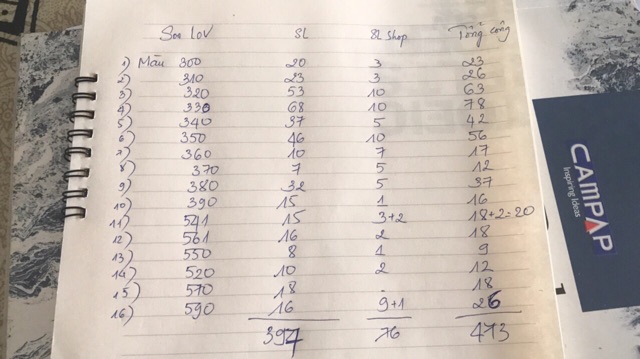 Son LoV SL SL Shop Tổng cộng
1) Màu 300 20 3 23
2) 310 23 3 26
3) 320 53 10 63
4) 330 68 10 78
5) 340 37 5 42
6) 350 46 10 56
7) 360 10 7 17
8) 370 7 5 12
9) 380 32 5 37
10) 390 15 1 16
11) 541 15 3+2 18+2=20
12) 561 16 2 18
13) 550 8 1 9
14) 520 10 2 12
15) 570 18 - 18
16) 590 16 9+1 26
397 76 473
CAMPAP
Inspiring Ideas